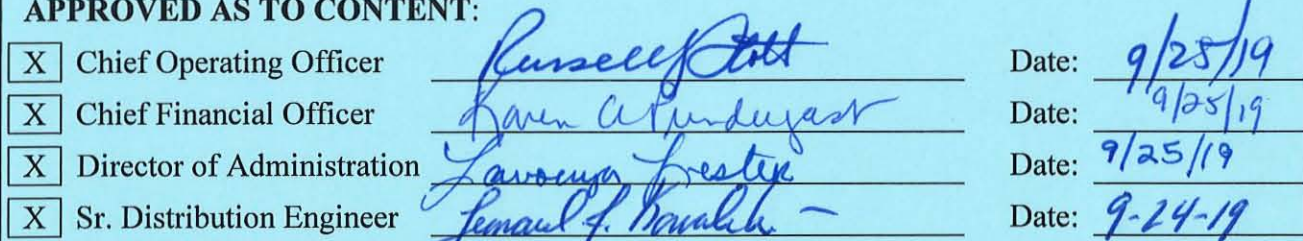 APPROVED AS TO CONTENT:
X Chief Operating Officer Russell Stott Date: 9/25/19
X Chief Financial Officer Karen A Pendergast Date: 9/25/19
X Director of Administration Date: 9/25/19
X Sr. Distribution Engineer Date: 9-24-19